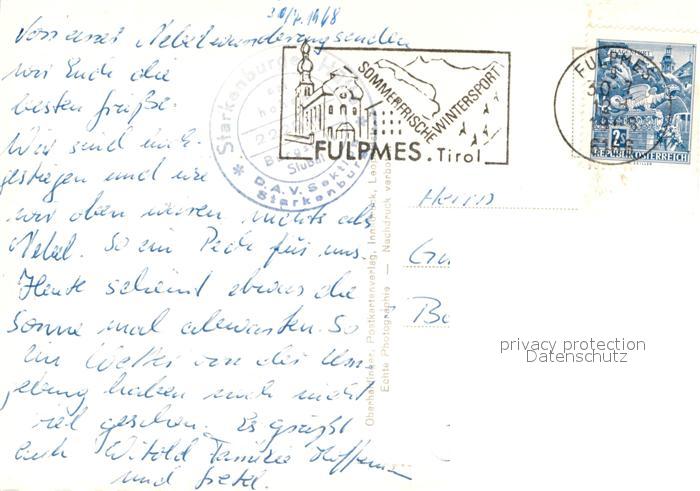 30/7.1968
Von einer Nebelwanderung senden
wir Euch die
besten Grüße.
Wir sind auf-
gestiegen und wie
wir oben waren nichts als
Nebel. So ein Pech für uns.
Heute scheint etwas die
Sonne mal abwarten. So
ein Wetter von der Um
gebung haben noch nicht
viel gesehen. Es grüßt
Euch Witold Familie
und
SOMMERFRISCHE WINTERSPORT
FULPMES. Tirol
FULPMES
30.
1968
6166
2 S
REPUBLIK ÖSTERREICH
Starkenburger
22
Stubai
D.A.V. Sektion
Starkenburg
Postkartenverlag, Innsbruck,
Echte Photographie — Nachdruck verboten
Herrn
privacy protection
Datenschutz